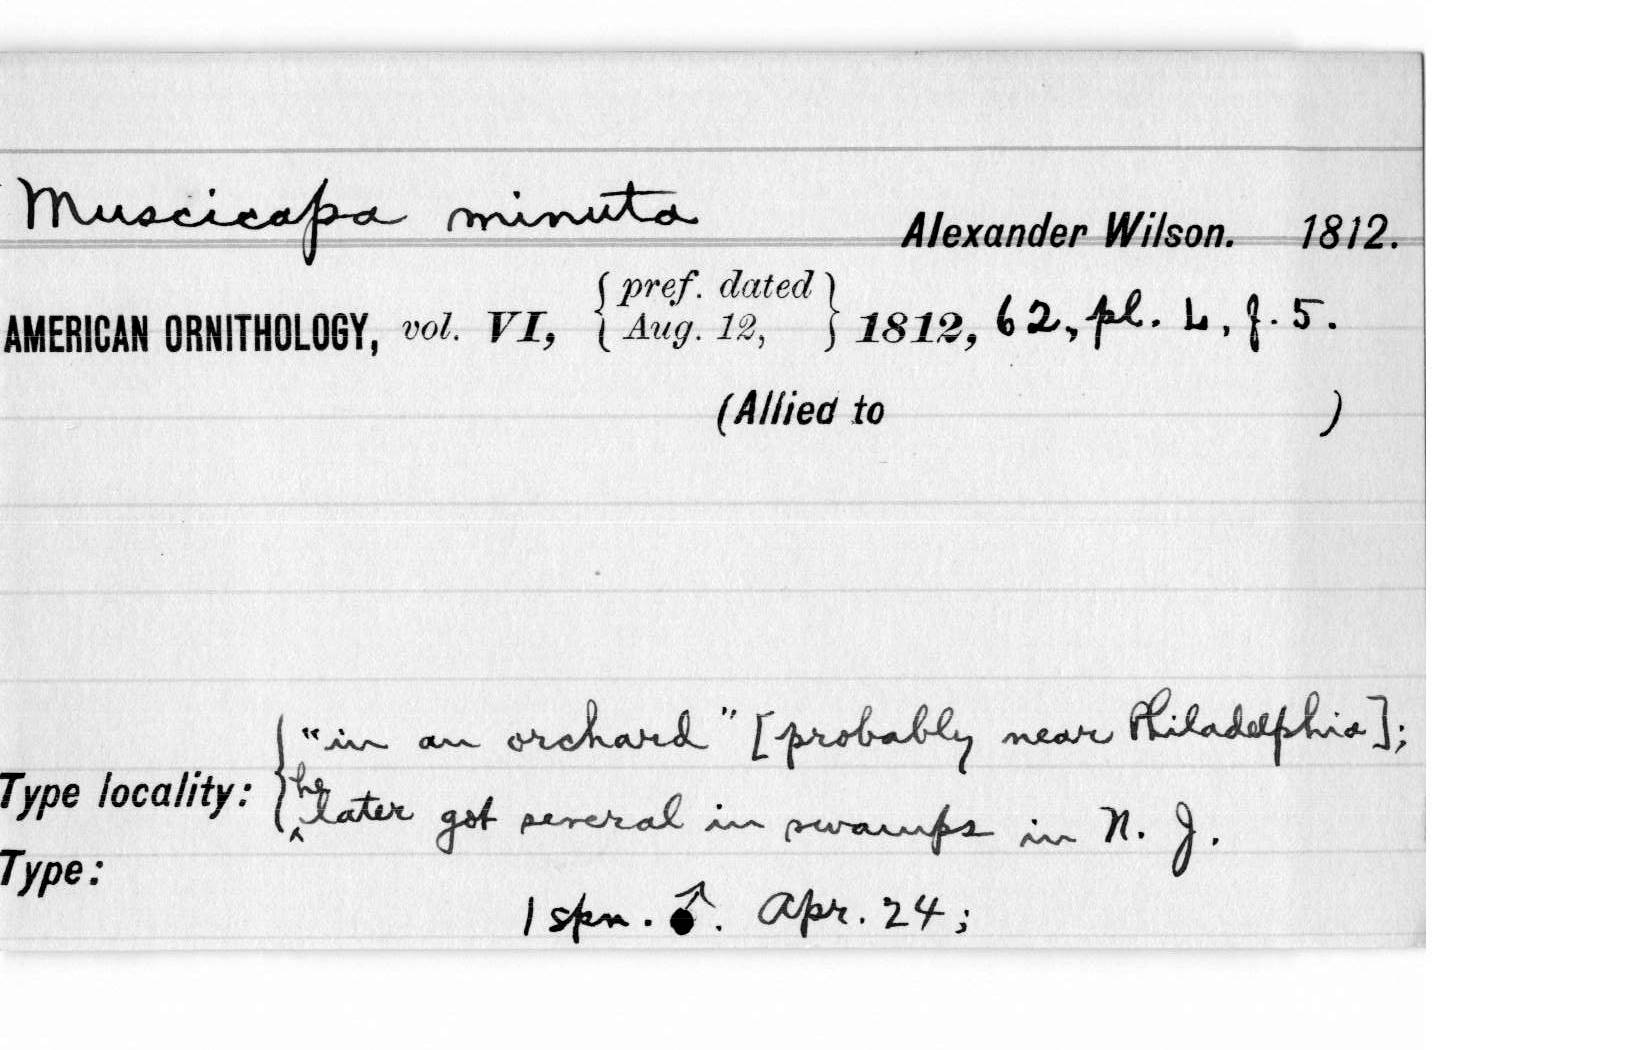 Muscicapa minuta Alexander Wilson. 1812.
AMERICAN ORNITHOLOGY, vol. VI, { pref. dated Aug. 12, } 1812, 62, pl. L, f. 5.
(Allied to )
Type locality: { "in an orchard" [probably near Philadelphia];
he later got several in swamps in N. J.
Type:
1 spn. ♂. Apr. 24;